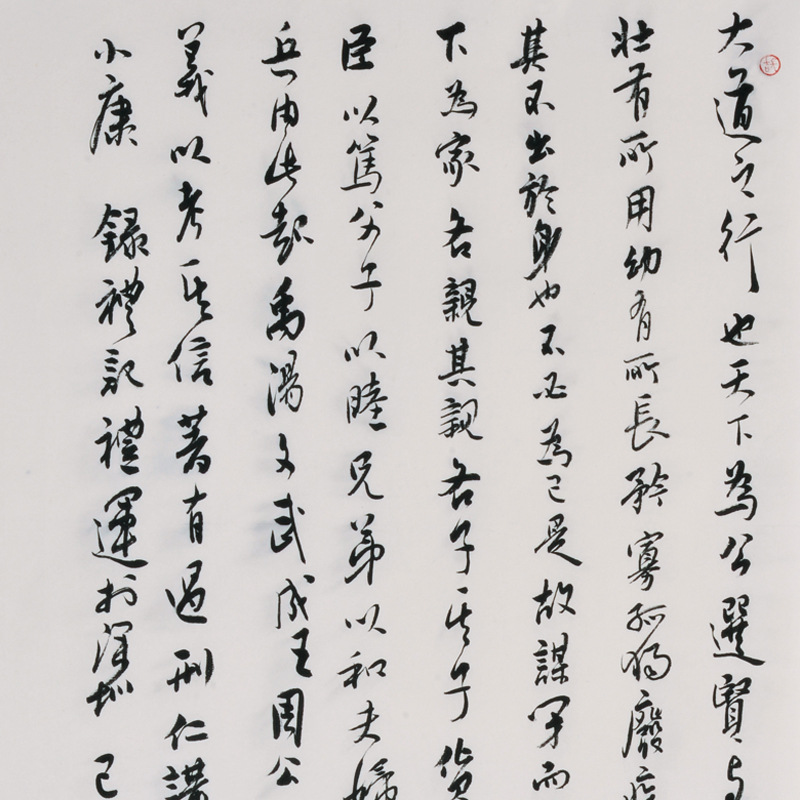 大道之行也天下為公選賢與
壯有所用幼有所長矜寡孤獨廢疾
其不出於身也不必為己是故謀閉而
下為家各親其親各子其子貨
臣以篤父子以睦兄弟以和夫婦
兵由此起禹湯文武成王周公
義以考其信著有過刑仁講
小康 錄禮記禮運於深圳 己